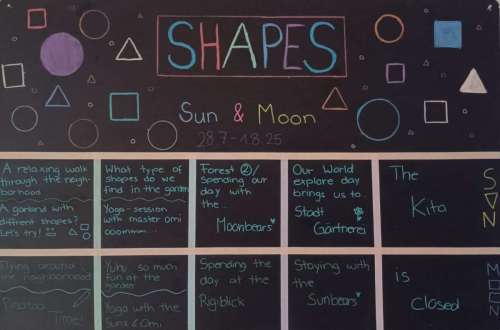 SHAPES
Sun & Moon
28.7-1.8.25
A relaxing walk
through the neigh-
borhood
A garland with
different shapes?
Let's try!
What type of
shapes do we
find in the garden
Yoga-session
with master omi
ooommm...
Forest ②/
Spending our
day with
the...
Moonbears
Our World
explore day
brings us to...
Stadt
Gärtnerei
The
Kita
SUN
Flying around
the neighbourhood
Pinatas
Time!
Yuhu so much
fun at the
garden
Yoga with the
Suns & Omi
Spending the
day at the
Rigiblick
Staying with
the
Sunbears
is
Closed
MOON